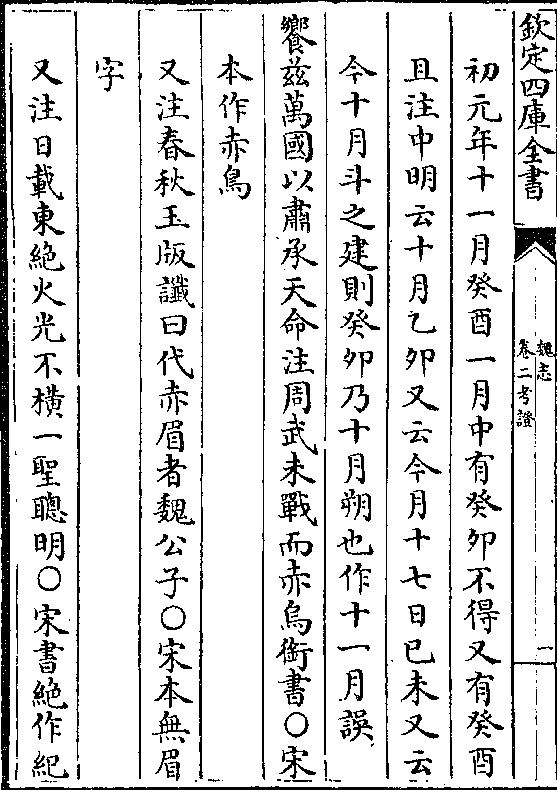 欽定四庫全書
魏志
卷二考證
一
初元年十一月癸酉一月中有癸卯不得又有癸酉
且注中明云十月乙卯又云今月十七日己未又云
今十月斗之建則癸卯乃十月朔也作十一月誤
饗兹萬國以肅承天命注周武未戰而赤烏銜書○宋
本作赤鳥
又注春秋玉版讖曰代赤眉者魏公子○宋本無眉
字
又注日載東絶火光不橫一聖聰明○宋書絶作紀